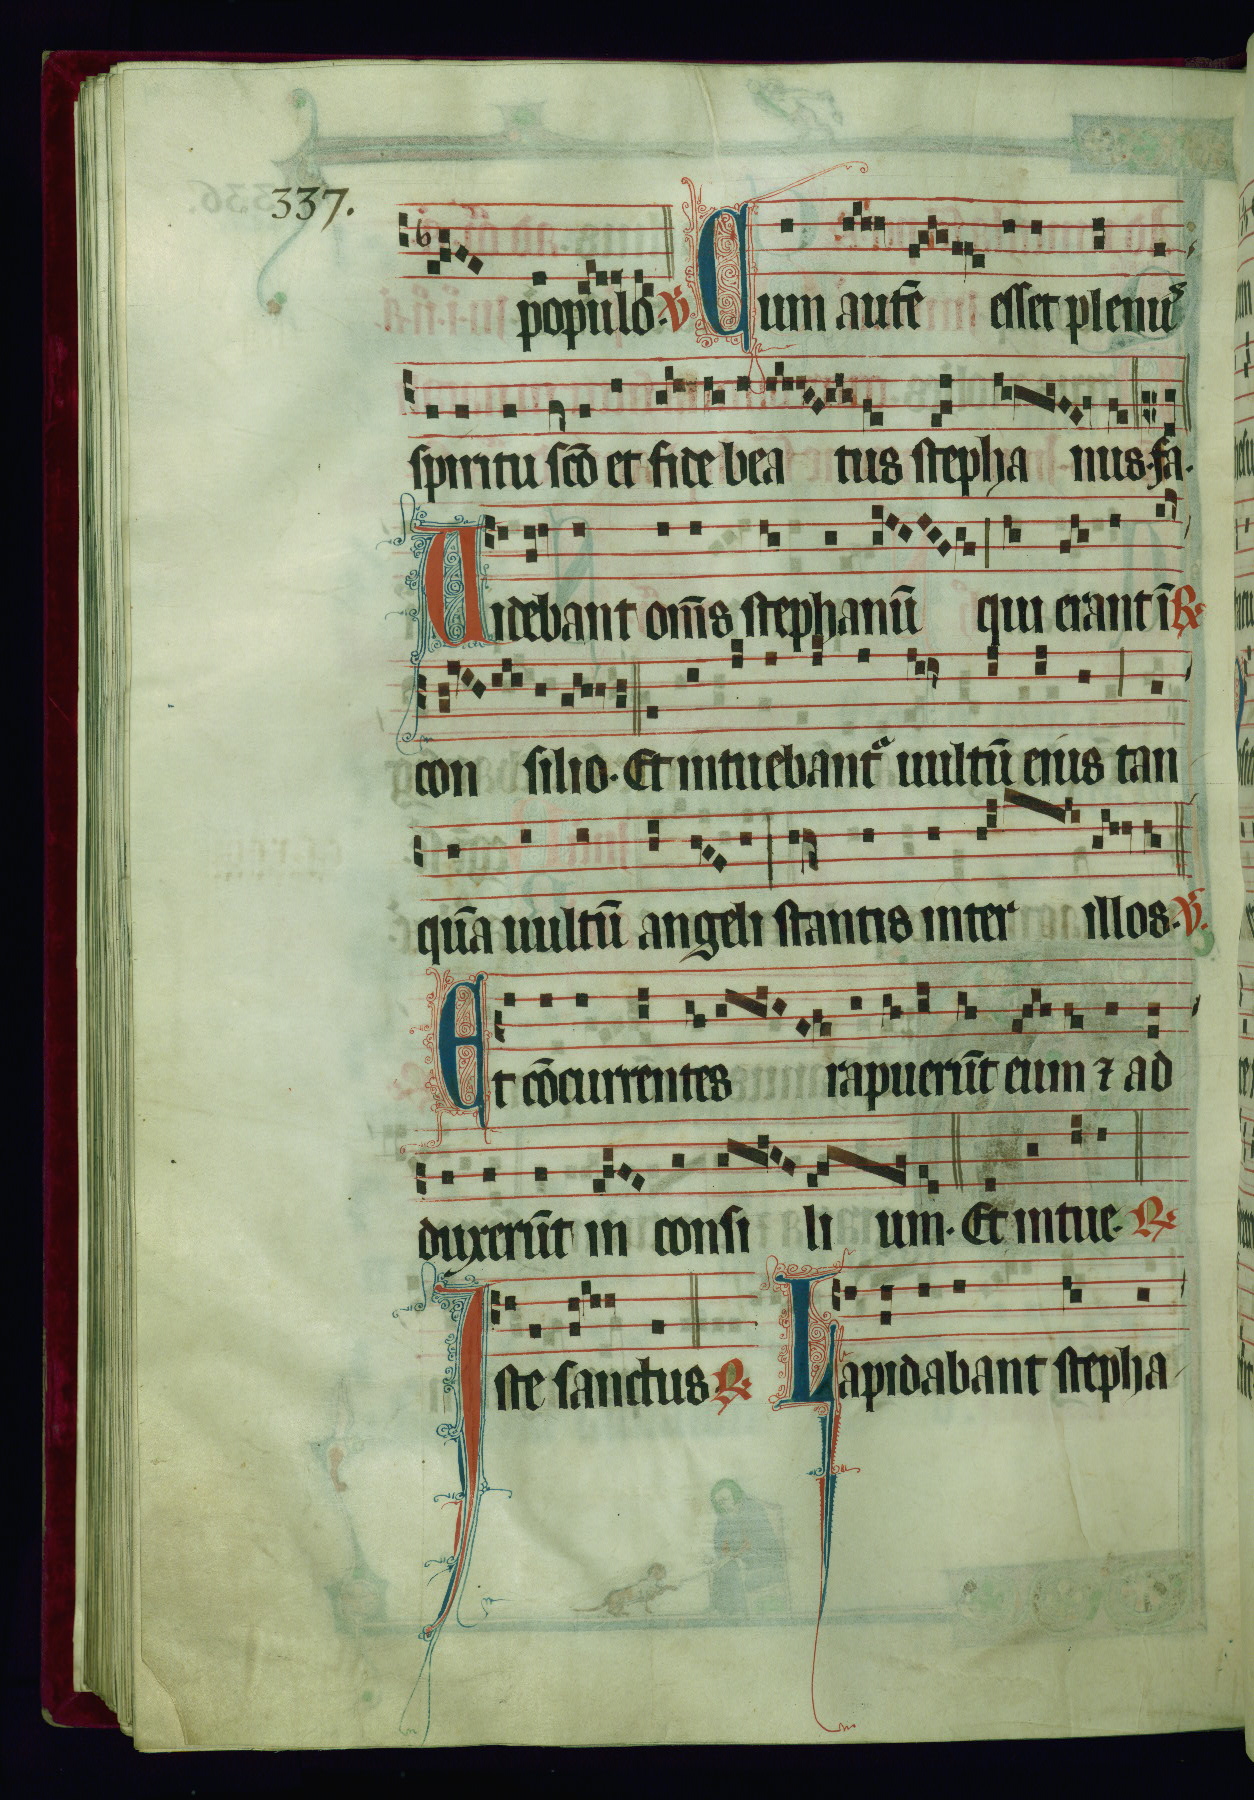 337.
populo. ℣ Cum autē esset plenus
spiritu scō et fide bea tus stepha nus. fa.
Uidebant om̄s stephanū qui erant ī ℟
con silio. Et intuebant᷑ uultū eius tan
quā uultū angeli stantis inter illos. ℣.
Et cōcurrentes rapuerūt eum ⁊ ad
duxerūt in consi li um. Et intue. ℟
Iste sanctus ℟ Lapidabant stepha